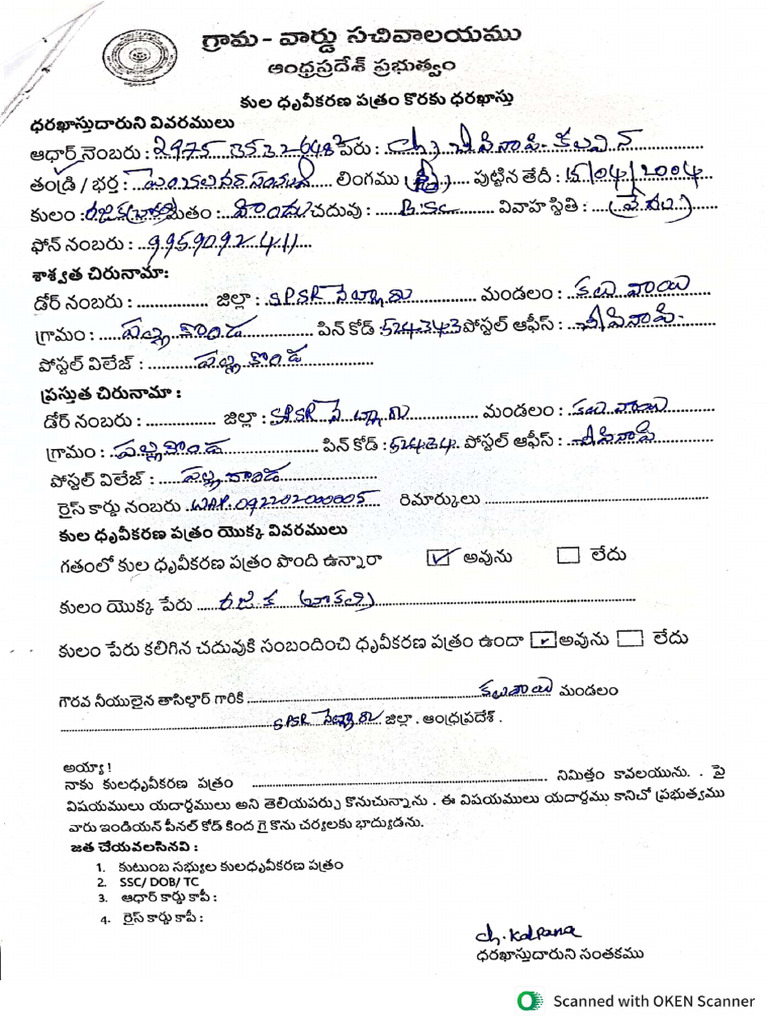 గ్రామ - వార్డు సచివాలయము
ఆంధ్రప్రదేశ్ ప్రభుత్వం
కుల ధృవీకరణ పత్రం కొరకు ధరఖాస్తు
ధరఖాస్తుదారుని వివరములు
ఆధార్ నెంబరు : 2975 3532 648 పేరు : Ch)
తండ్రి / భర్త : లింగము (స్త్రీ) పుట్టిన తేదీ : 15/04/2004
కులం : రజిక మతం : హిందు చదువు : B.Sc వివాహ స్థితి :
ఫోన్ నంబరు : 9959092411
శాశ్వత చిరునామా:
డోర్ నంబరు : ............... జిల్లా : SPSR నెల్లూరు మండలం : కలువాయి
గ్రామం : పల్లి కొండ పిన్ కోడ్ 524343 పోస్టల్ ఆఫీస్ : చీపినాపి
పోస్టల్ విలేజ్ : పల్లి కొండ
ప్రస్తుత చిరునామా :
డోర్ నంబరు : ............... జిల్లా : SPSR నెల్లూరు మండలం : కలువాయి
గ్రామం : పల్లికొండ పిన్ కోడ్ : 52434 పోస్టల్ ఆఫీస్ : చీపినాపి
పోస్టల్ విలేజ్ : పల్లి కొండ
రైస్ కార్డు నంబరు రిమార్కులు
కుల ధృవీకరణ పత్రం యొక్క వివరములు
గతంలో కుల ధృవీకరణ పత్రం పొంది ఉన్నారా ✓ అవును లేదు
కులం యొక్క పేరు రజిక (చాకలి)
కులం పేరు కలిగిన చదువుకి సంబందించి ధృవీకరణ పత్రం ఉందా ✓ అవును లేదు
గౌరవ నీయులైన తాసిల్దార్ గారికి కలువాయి మండలం
SPSR నెల్లూరు జిల్లా . ఆంధ్రప్రదేశ్ .
అయ్యా !
నాకు కులధృవీకరణ పత్రం నిమిత్తం కావలయును. . పై
విషయములు యదార్ధములు అని తెలియపర్చు కొనుచున్నాను . ఈ విషయములు యదార్ధము కానిచో ప్రభుత్వము
వారు ఇండియన్ పీనల్ కోడ్ కింద గై కొను చర్యలకు భాద్యుడను.
జత చేయవలసినవి :
1. కుటుంబ సభ్యుల కులధృవీకరణ పత్రం
2. SSC/ DOB/ TC
3. ఆధార్ కార్డు కాపీ :
4. రైస్ కార్డు కాపీ :
ch. Kalpana
ధరఖాస్తుదారుని సంతకము
Scanned with OKEN Scanner